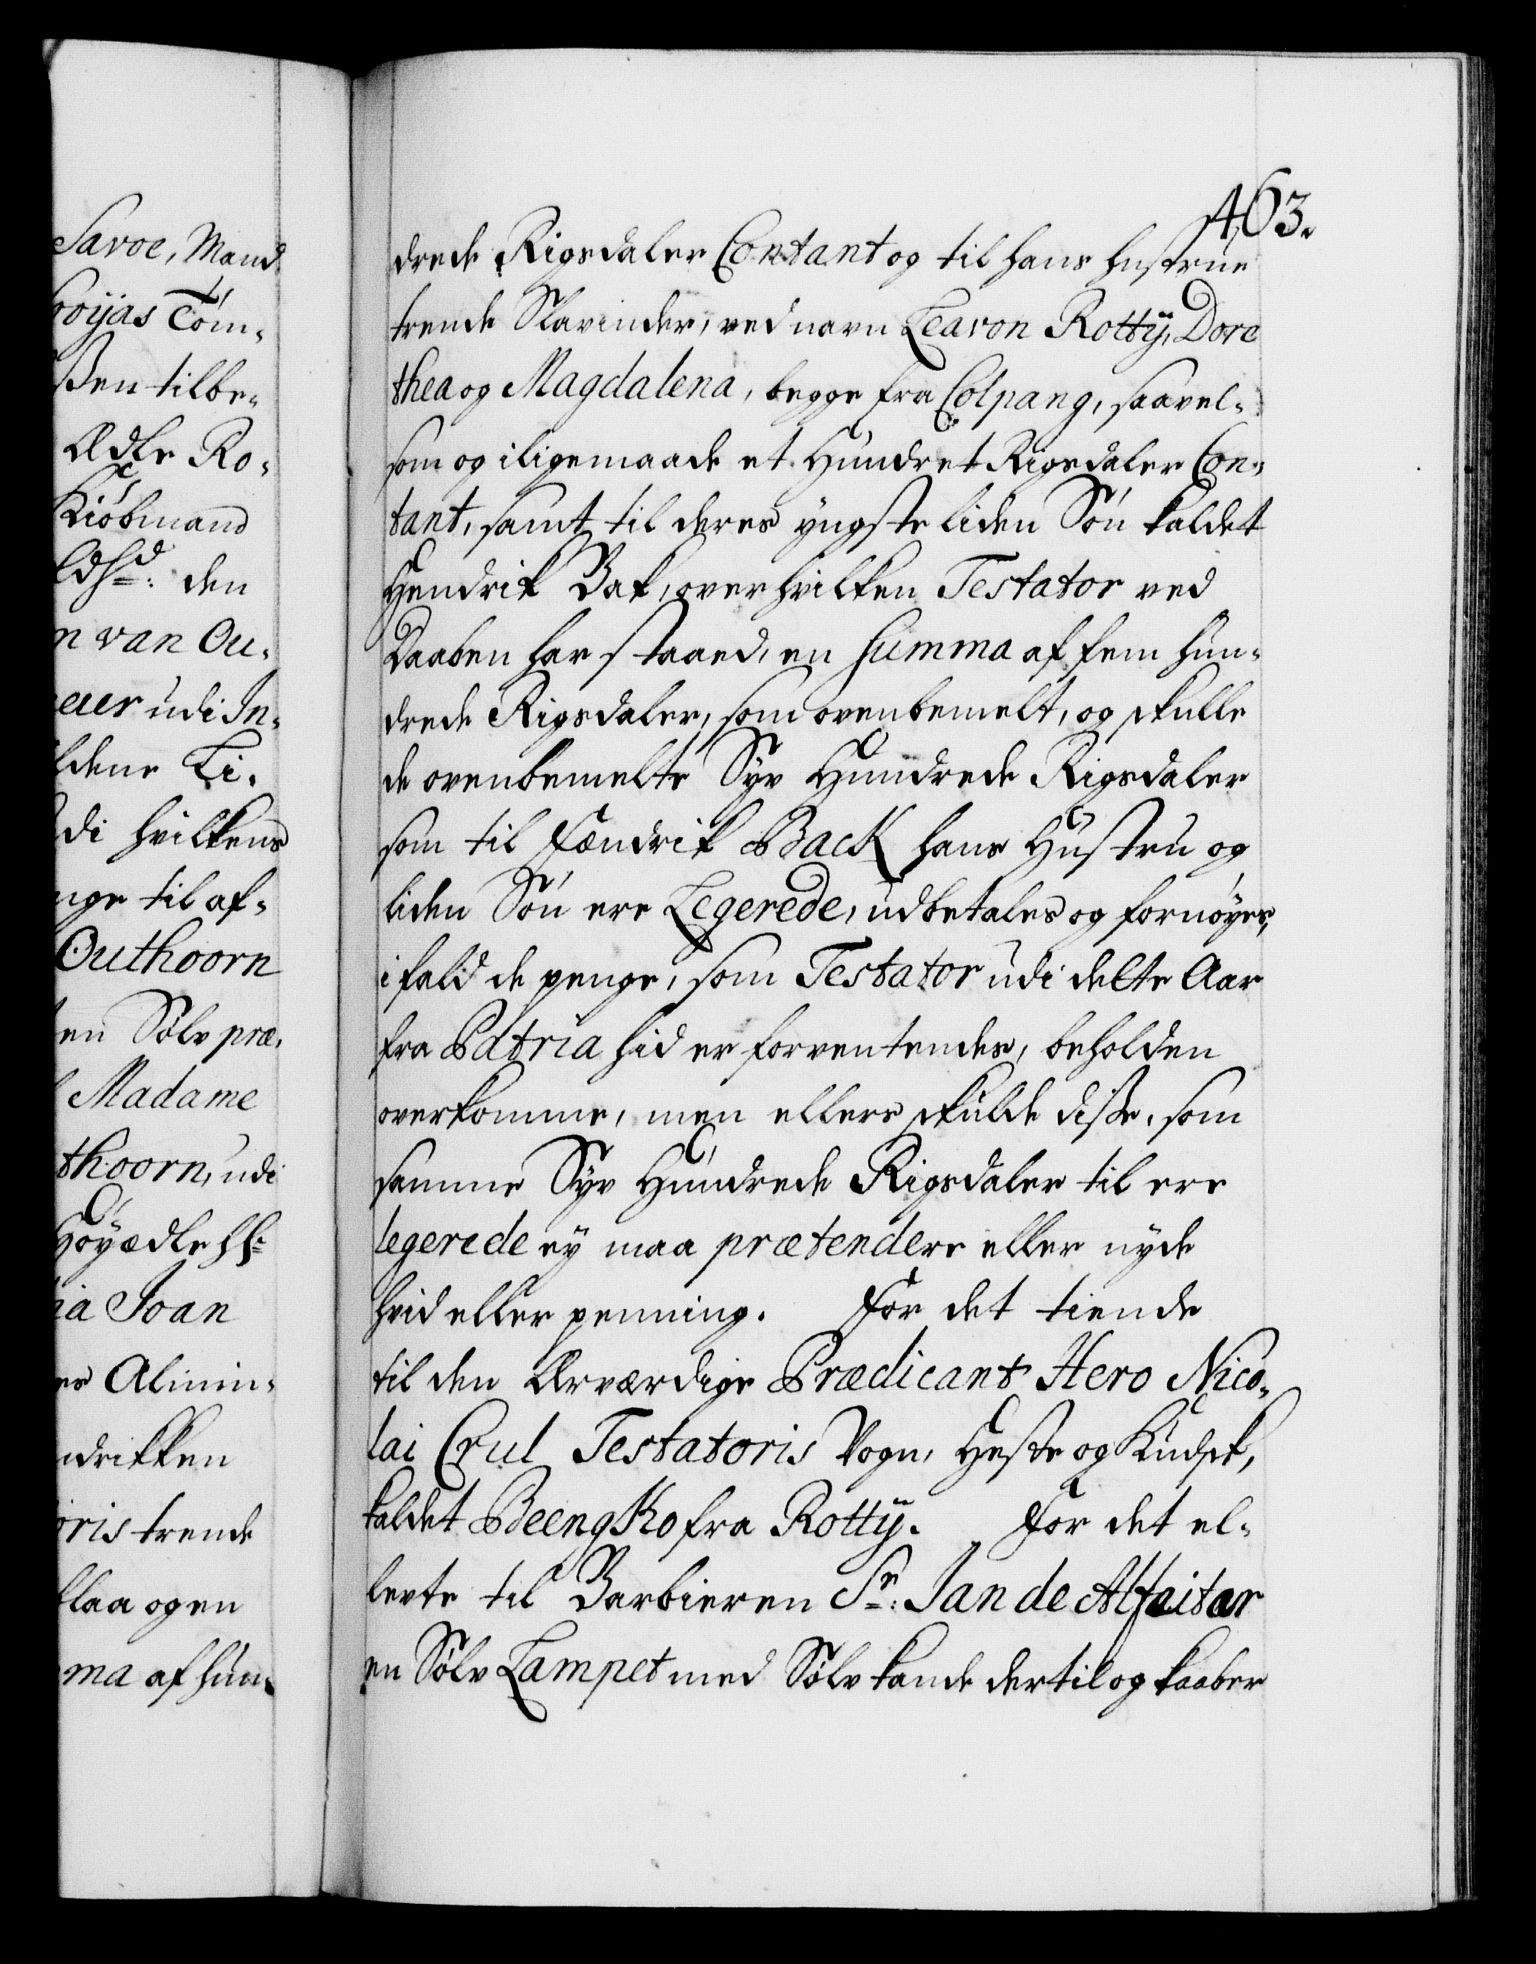 Savoe, Mand
ooijas Töm-
ßen tilbe-
Ædle Ro-
Kiöbmand
den
n van Ou-
udi In-
ldene Li-
di hvilkens
nge til af-
Outhoorn
en Sølv præ-
Madame
thoorn, udi
Höyædle
ia Joan
es Alinin-
ndrikken
oris trende
klaa og en
ma af hun-
463.
drede Rigsdaler Contant og til hans hustrue
trende Slavinder, ved navn Leavon Rottij, Dore
thea og Magdalena, begge fra Colpang, saavel-
som og iligemaade et Hundret Rigsdaler Con-
tant, samt til deres yngste liden Sön kaldet
Hendrik Bak, over hvilken Testator ved
Daaben har staaed, en summa af fem hun-
drede Rigsdaler, som ovenbemelt, og skulle
de ovenbemelte Syv Hundrede Rigsdaler
som til Fændrik Back hans Hustru og
liden Sön ere Legerede, udbetales og fornöyes,
ifald de penge, som Testator udi dette Aar
fra Patria hid er forventendes, beholden
overkomme, men ellers skulde diße, som
samme Syv Hundrede Rigsdaler til ere
legerede ey maa prætendere eller nyde
hvid eller penning. For det tiende
til den Ærværdige Prædicant Hero Nico-
lai Crul Testatoris Vogn, Heste og Kudsk,
kaldet Beengko fra Rottij. For det el-
levte til Barbieren Sr: Jan de Alfaitar
en Sölv Lampet med Sölv kande dertil og kaaber